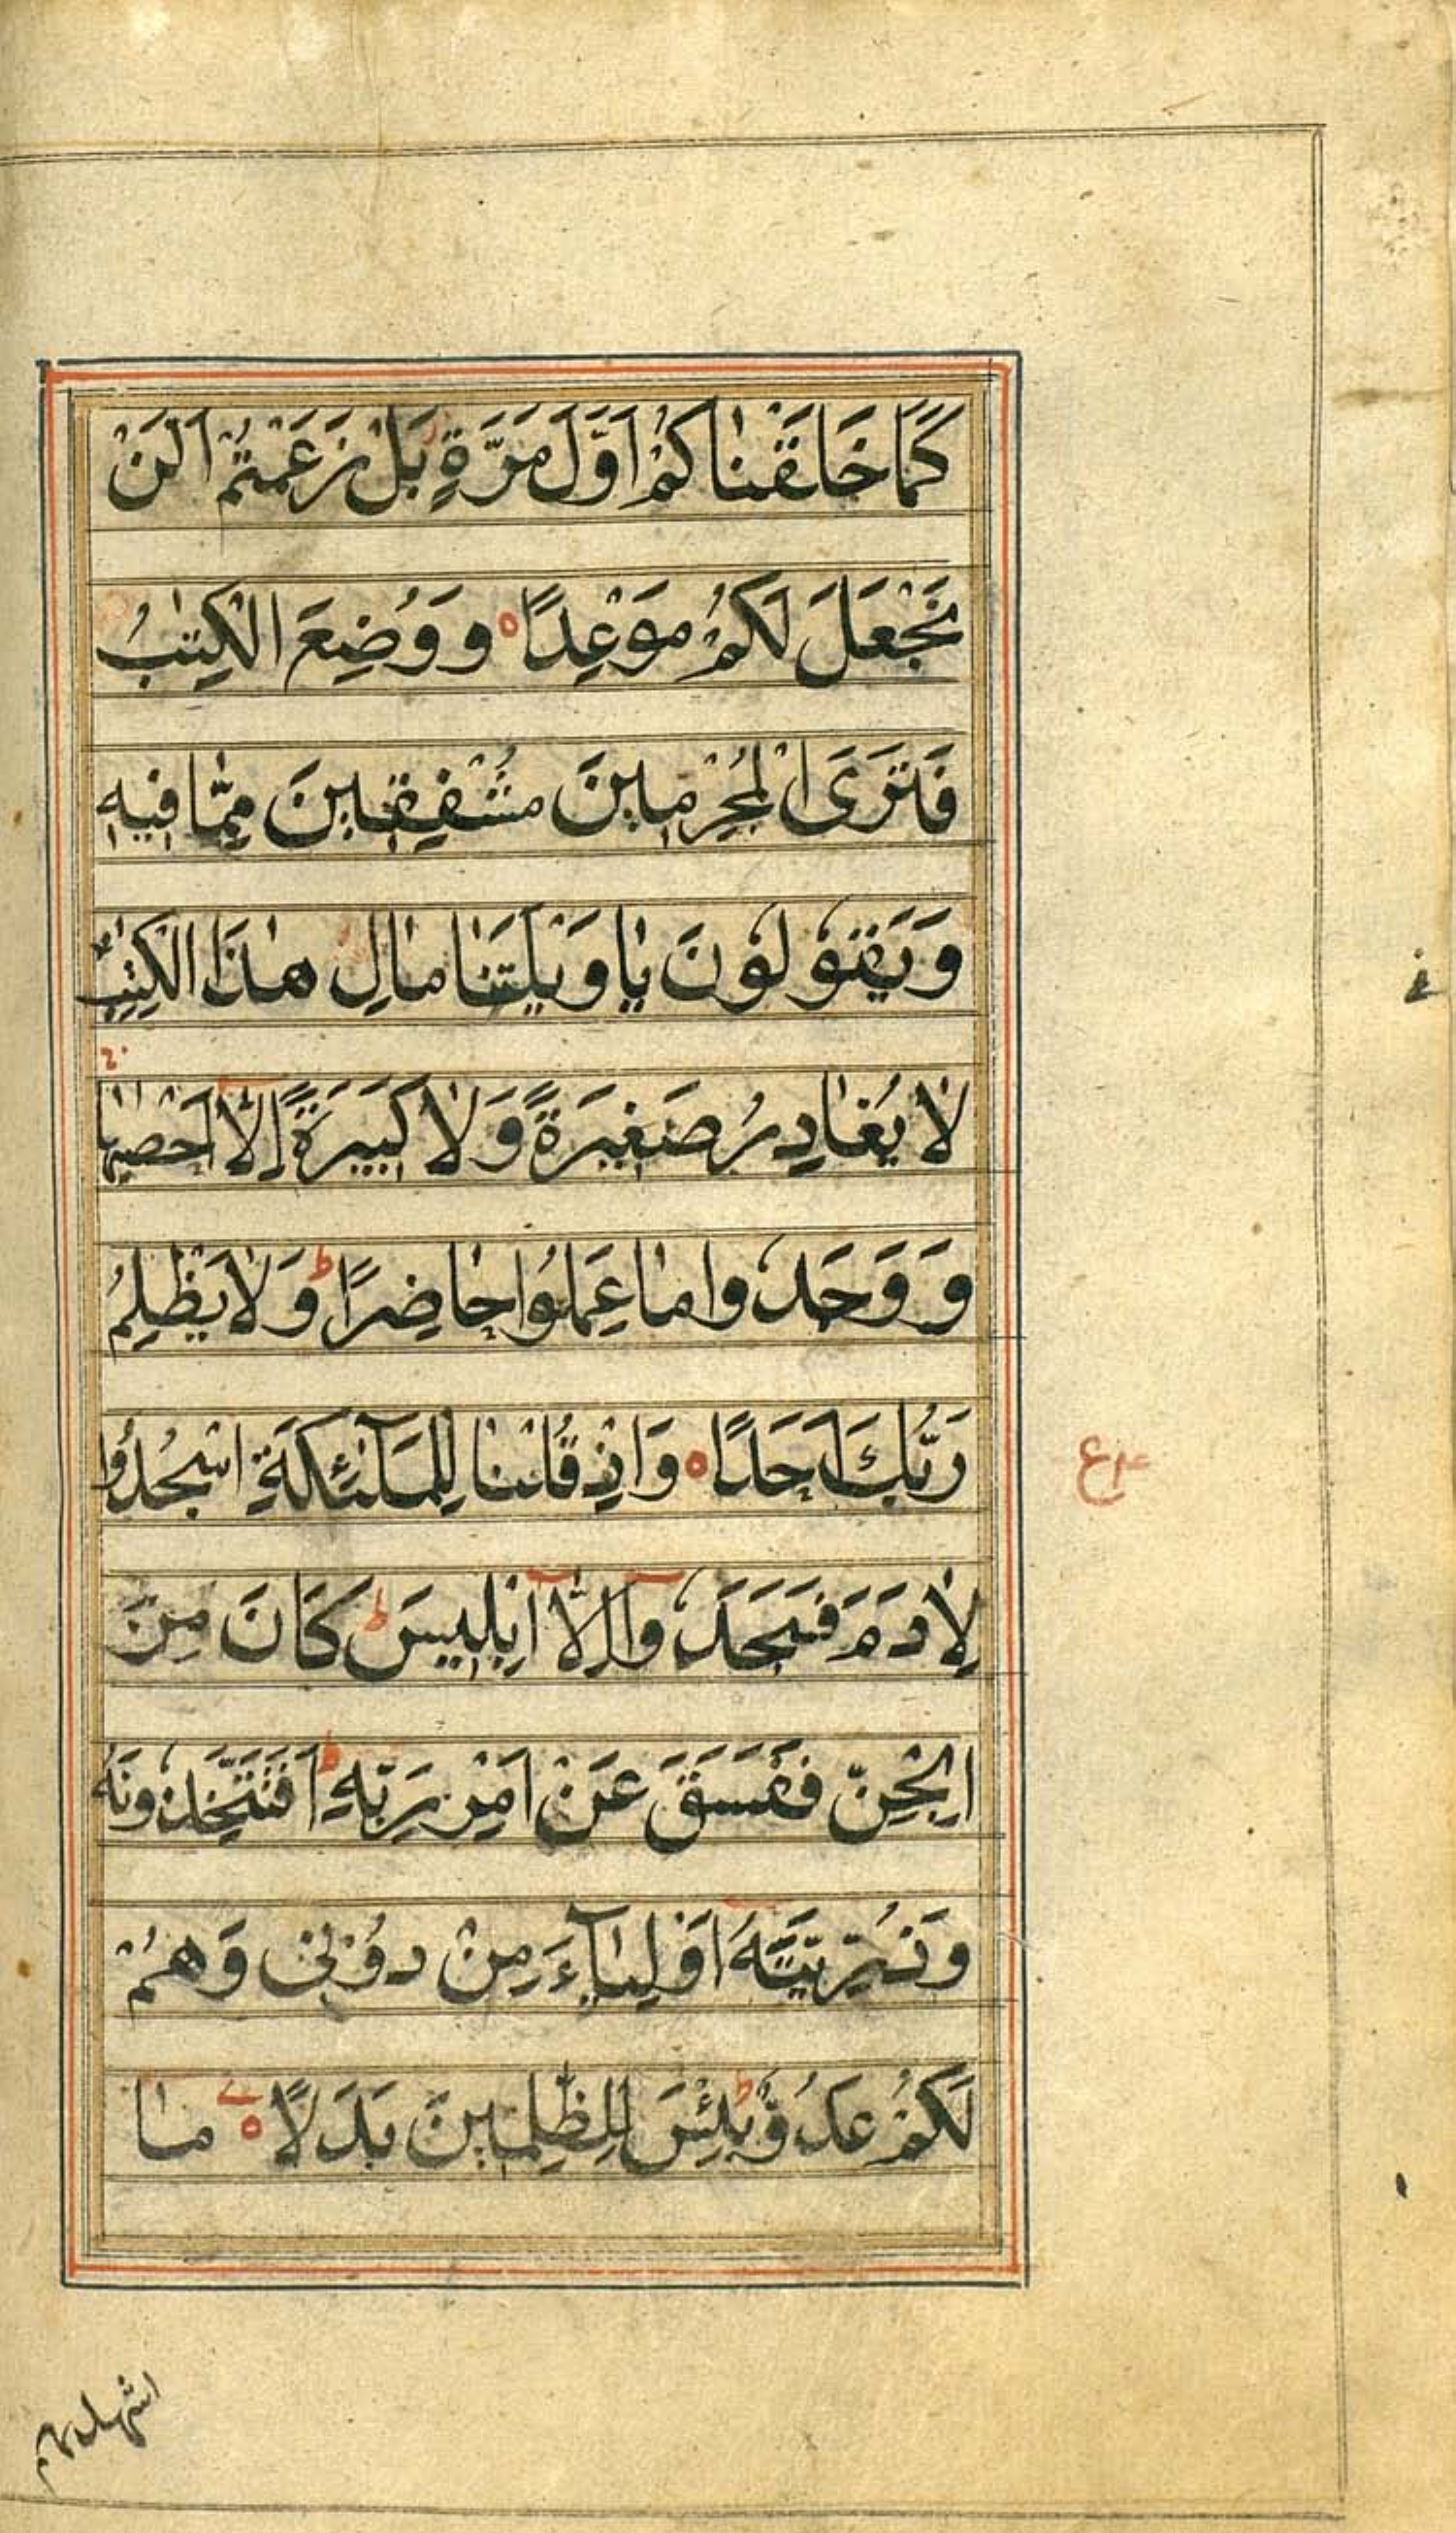 كَمَا خَلَقْنَاكُمْ اَوَّلَ مَرَّةٍ بَلْ زَعَمْتُمْ اَلَنْ
نَجْعَلَ لَكُمْ مَوْعِدًا ۝ وَوُضِعَ الْكِتٰبُ
فَتَرَى الْمُجْرِمِينَ مُشْفِقِينَ مِمَّا فِيهِ
وَيَقُولُونَ يَا وَيْلَتَنَا مَالِ هٰذَا الْكِتٰبِ
لَا يُغَادِرُ صَغِيرَةً وَلَا كَبِيرَةً اِلَّا اَحْصٰيهَا
وَوَجَدُوا مَا عَمِلُوا حَاضِرًا ط وَلَا يَظْلِمُ
رَبُّكَ اَحَدًا ۝ وَاِذْ قُلْنَا لِلْمَلٰٓئِكَةِ اسْجُدُوا
لِاٰدَمَ فَسَجَدُوا اِلَّا اِبْلِيسَ ط كَانَ مِنَ
الْجِنِّ فَفَسَقَ عَنْ اَمْرِ رَبِّهِ ط اَفَتَتَّخِذُونَهُ
وَذُرِّيَّتَهُ اَوْلِيَآءَ مِنْ دُوْنِي وَهُمْ
لَكُمْ عَدُوٌّ ط بِئْسَ لِلظّٰلِمِينَ بَدَلًا ۝ مَا
ع
اشهدتهم